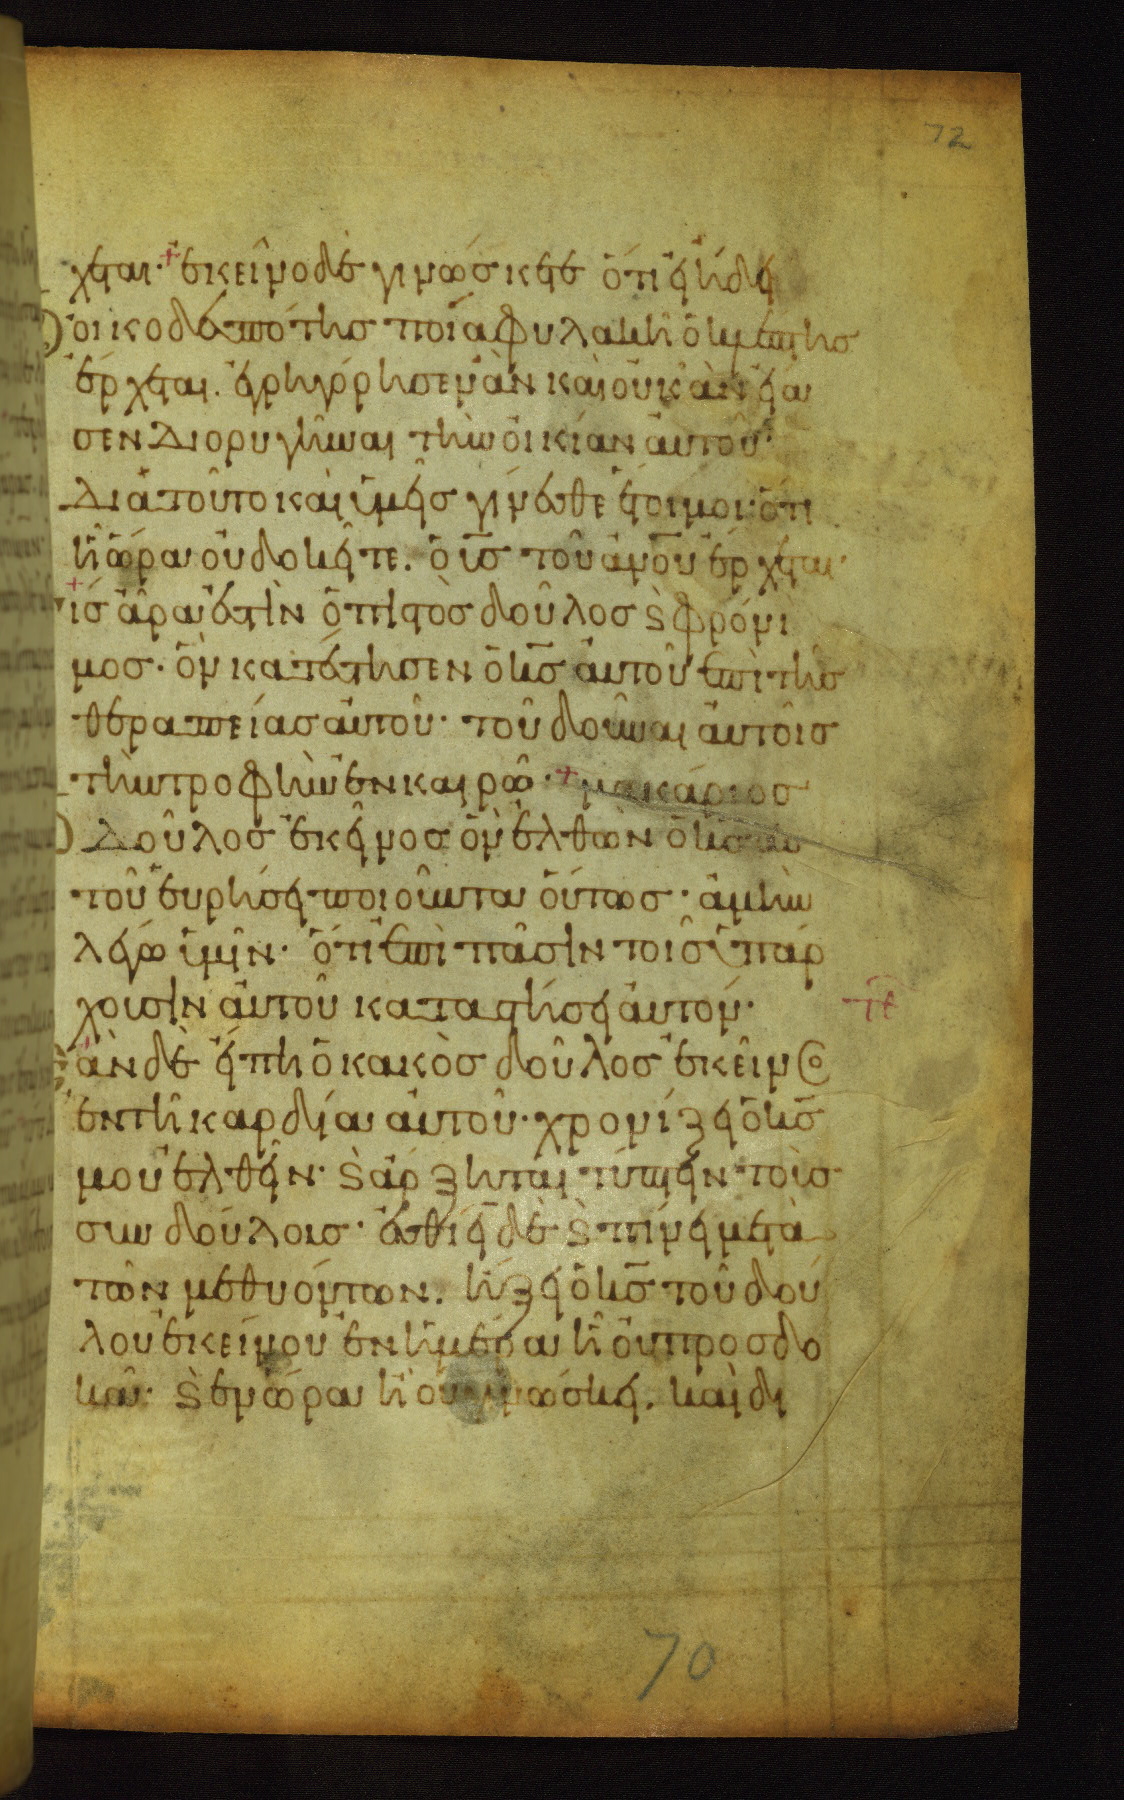 72
χεται· ἐκεῖνο δὲ γινώσκετε ὅτι εἰ ἤδει
ὁ οἰκοδεσπότης ποία φυλακῆ ὁ κλέπτης
ἔρχεται. ἐγρηγόρησεν ἂν καὶ οὐκ ἂν εἴα
σεν διορυγῆναι τὴν οἰκίαν αὐτοῦ·
διὰ τοῦτο καὶ ὑμεῖς γίνεσθε ἕτοιμοι· ὅτι
ἧ ὥρα οὐ δοκεῖτε. ὁ υ̅ς̅ τοῦ α̅ν̅ο̅υ̅ ἔρχεται·
τίς ἄρα ἐστὶν ὁ πιστὸς δοῦλος ϗ φρόνι
μος· ὃν κατέστησεν ὁ κ̅ς̅ αὐτοῦ ἐπὶ τῆς
θεραπείας αὐτοῦ· τοῦ δοῦναι αὐτοῖς
τὴν τροφὴν ἐν καιρῶ· μακάριος
ὁ δοῦλος ἐκεῖνος ὃν ἐλθὼν ὁ κ̅ς̅ αὐ
τοῦ εὑρήσει ποιοῦντα οὕτως· ἀμὴν
λέγω ὑμῖν· ὅτι ἐπὶ πᾶσιν τοῖς ὑπάρ
χουσιν αὐτοῦ καταστήσει αὐτόν·
ἐὰν δὲ εἴπη ὁ κακὸς δοῦλος ἐκεῖνος
ἐν τῆ καρδία αὐτοῦ· χρονίζει ὁ κ̅ς̅
μου ἐλθεῖν· ϗ ἄρξηται τύπτειν τοὺς
συνδούλους· ἐσθίει δὲ ϗ πίνει μετὰ
τῶν μεθυόντων. ἥξει ὁ κ̅ς̅ τοῦ δού
λου ἐκείνου ἐν ἡμέρα ἧ οὐ προσδο
κᾶ· ϗ ἐν ὥρα ἧ οὐ γινώσκει. καὶ δι
70